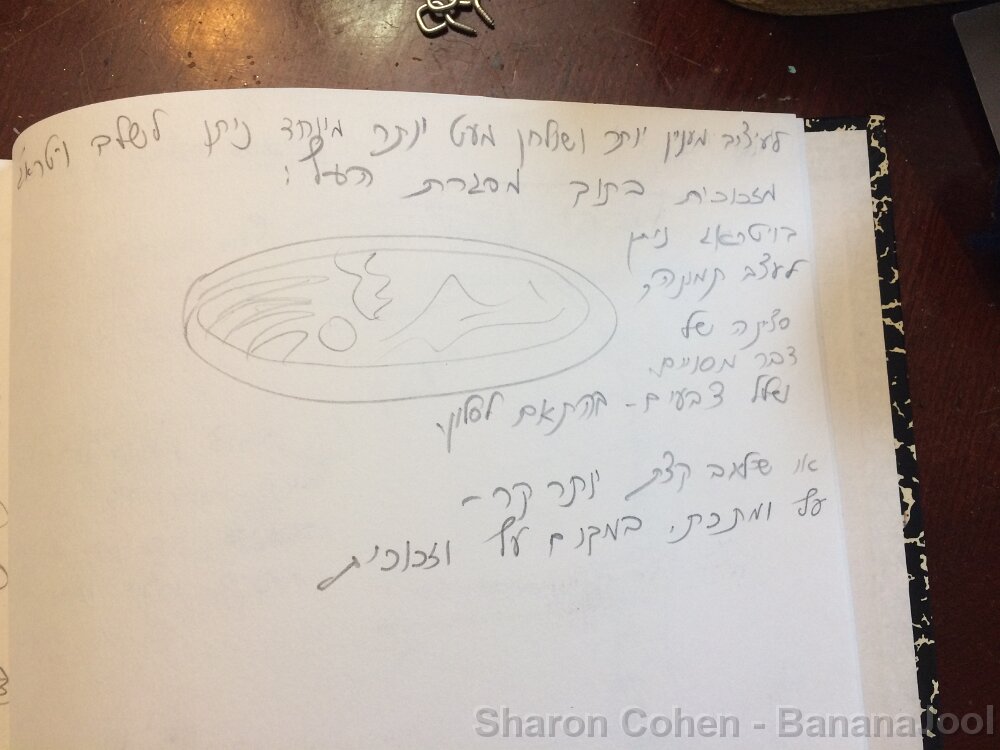 לעיצוב מענין יותר ושולחן מעט יותר מיוחד ניתן לשלב ויטראג'
מזכוכית בתוך מסגרת העץ:
בויטראג' ניתן
לעצב תמונה,
סצינה של
דבר מסויים.
שלל צבעים - בהתאם לסלון.
או שילוב קצת יותר קר -
עץ ומתכת, במקום עץ וזכוכית
Sharon Cohen - BananaTool